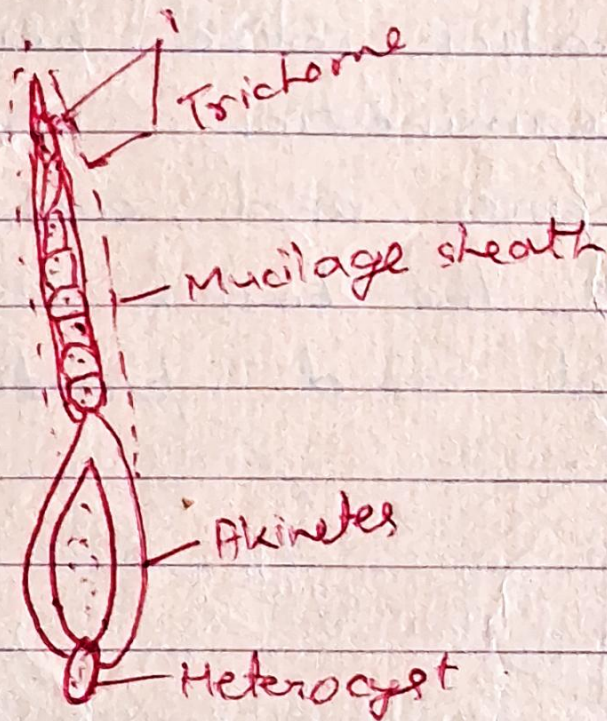 Trichome
Mucilage sheath
Akinetes
Heterocyst